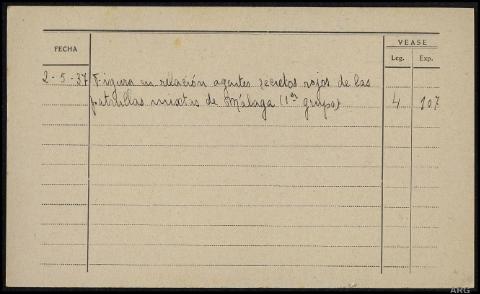 FECHA
VEASE
Leg. Exp.
2-5-37 Figura en relación agentes secretos rojos de las
patrullas mixtas de Málaga (1er grupo). 4 107
ARG